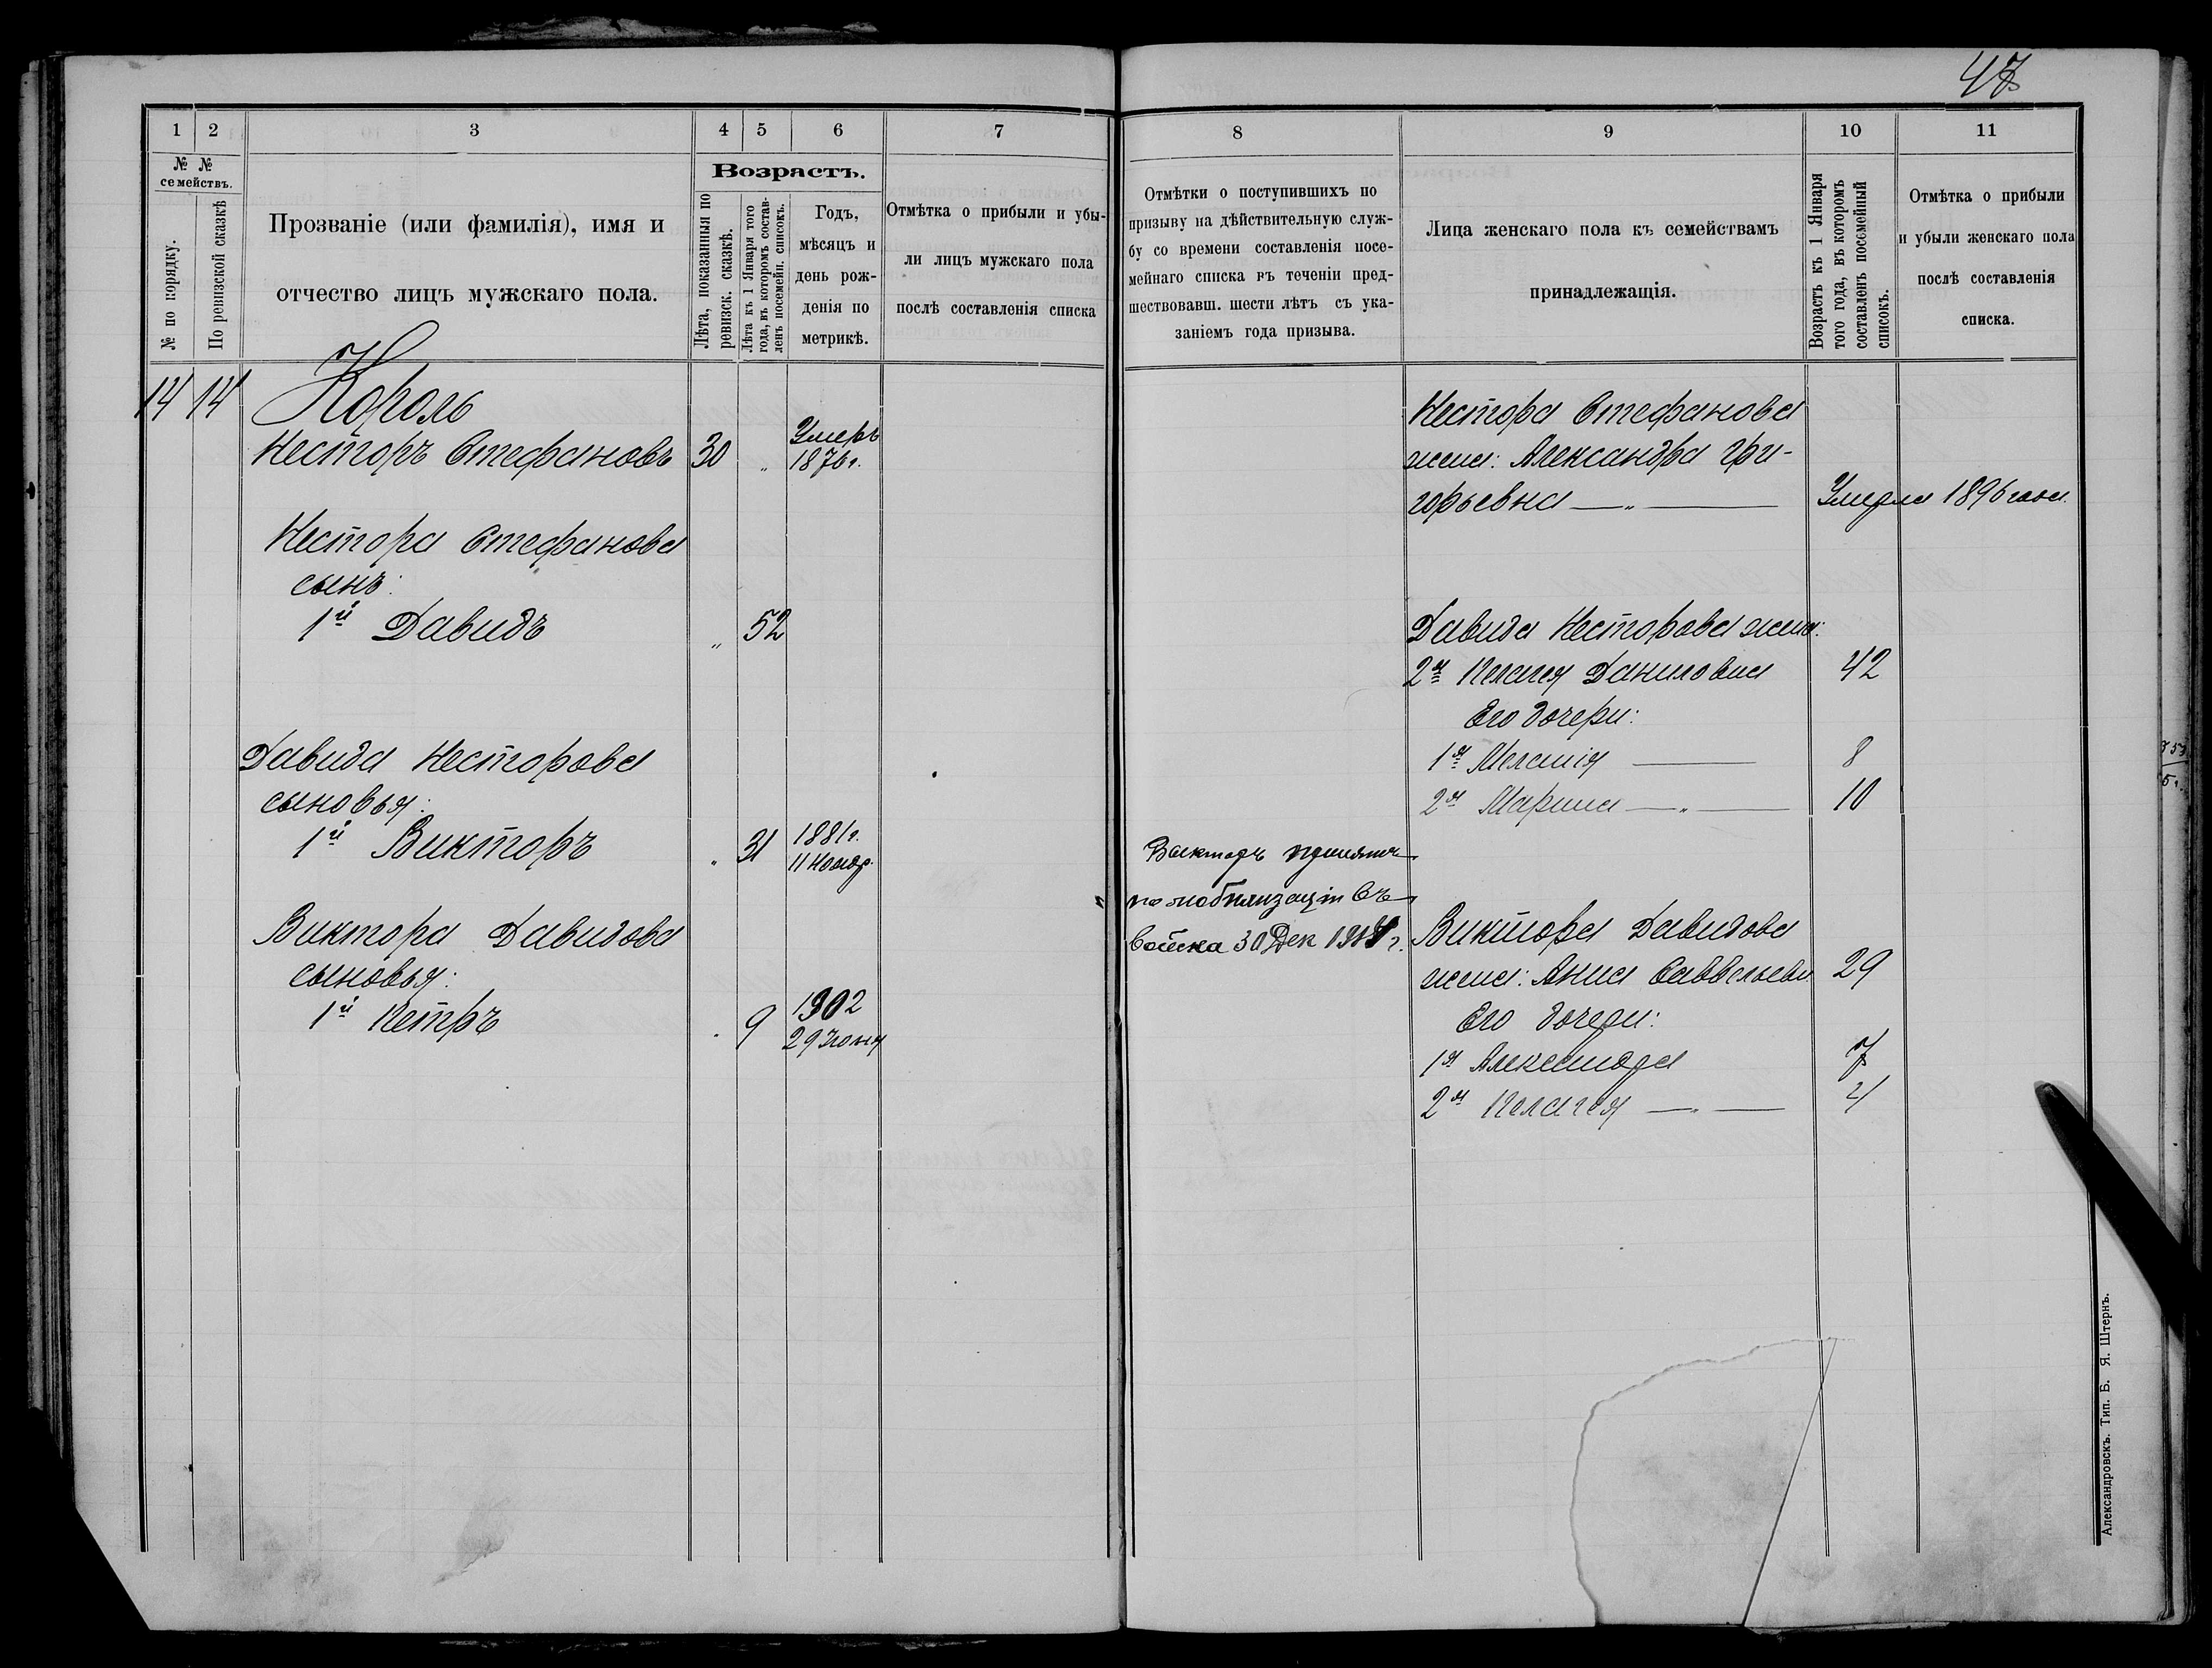 47
1 2 3 4 5 6 7
№ № семействъ.
№ по порядку.
По ревизской сказкѣ
Прозваніе (или фамилія), имя и
отчество лицъ мужскаго пола.
Возрастъ.
Лѣта, показанныя по
ревизск. сказкѣ.
Лѣта къ 1 Января того
года, въ которомъ состав-
ленъ посемейн. списокъ.
Годъ,
мѣсяцъ и
день рож-
денія по
метрикѣ.
Отмѣтка о прибыли и убы-
ли лицъ мужскаго пола
послѣ составленія списка
14 14 Король
Несторъ Стефановъ 30 „ Умеръ
1876 г.
Нестора Стефанова
сынъ:
1й Давидъ „ 52
Давида Несторова
сыновья:
1й Викторъ „ 31 1881 г.
11 Ноябр.
Виктора Давидова
сыновья:
1й Петръ „ 9 1902
29 Іюня
8 9 10 11
Отмѣтки о поступившихъ по
призыву на дѣйствительную служ-
бу со времени составленія посе-
мейнаго списка въ теченіи пред-
шествовавш. шести лѣтъ съ ука-
заніемъ года призыва.
Лица женскаго пола къ семействамъ
принадлежащія.
Возрастъ къ 1 Января
того года, въ которомъ
составленъ посемейный
списокъ.
Отмѣтка о прибыли
и убыли женскаго пола
послѣ составленія
списка.
Нестора Стефанова
жена: Александра Гри-
горьевна —„— Умерла 1896 года.
Давида Несторова жена:
2я Пелагея Даниловна 42
Его дочери:
1я Меланія — 8
2я Марина —„— 10
Викторъ принятъ
по мобилизаціи въ
войска 30 Дек 1914 г.
Виктора Давидова
жена: Анна Савельевн. 29
Его дочери:
1я Александра 7
2я Пелагея —„— 4
Александровскъ. Тип. Б. Я. Штернъ.